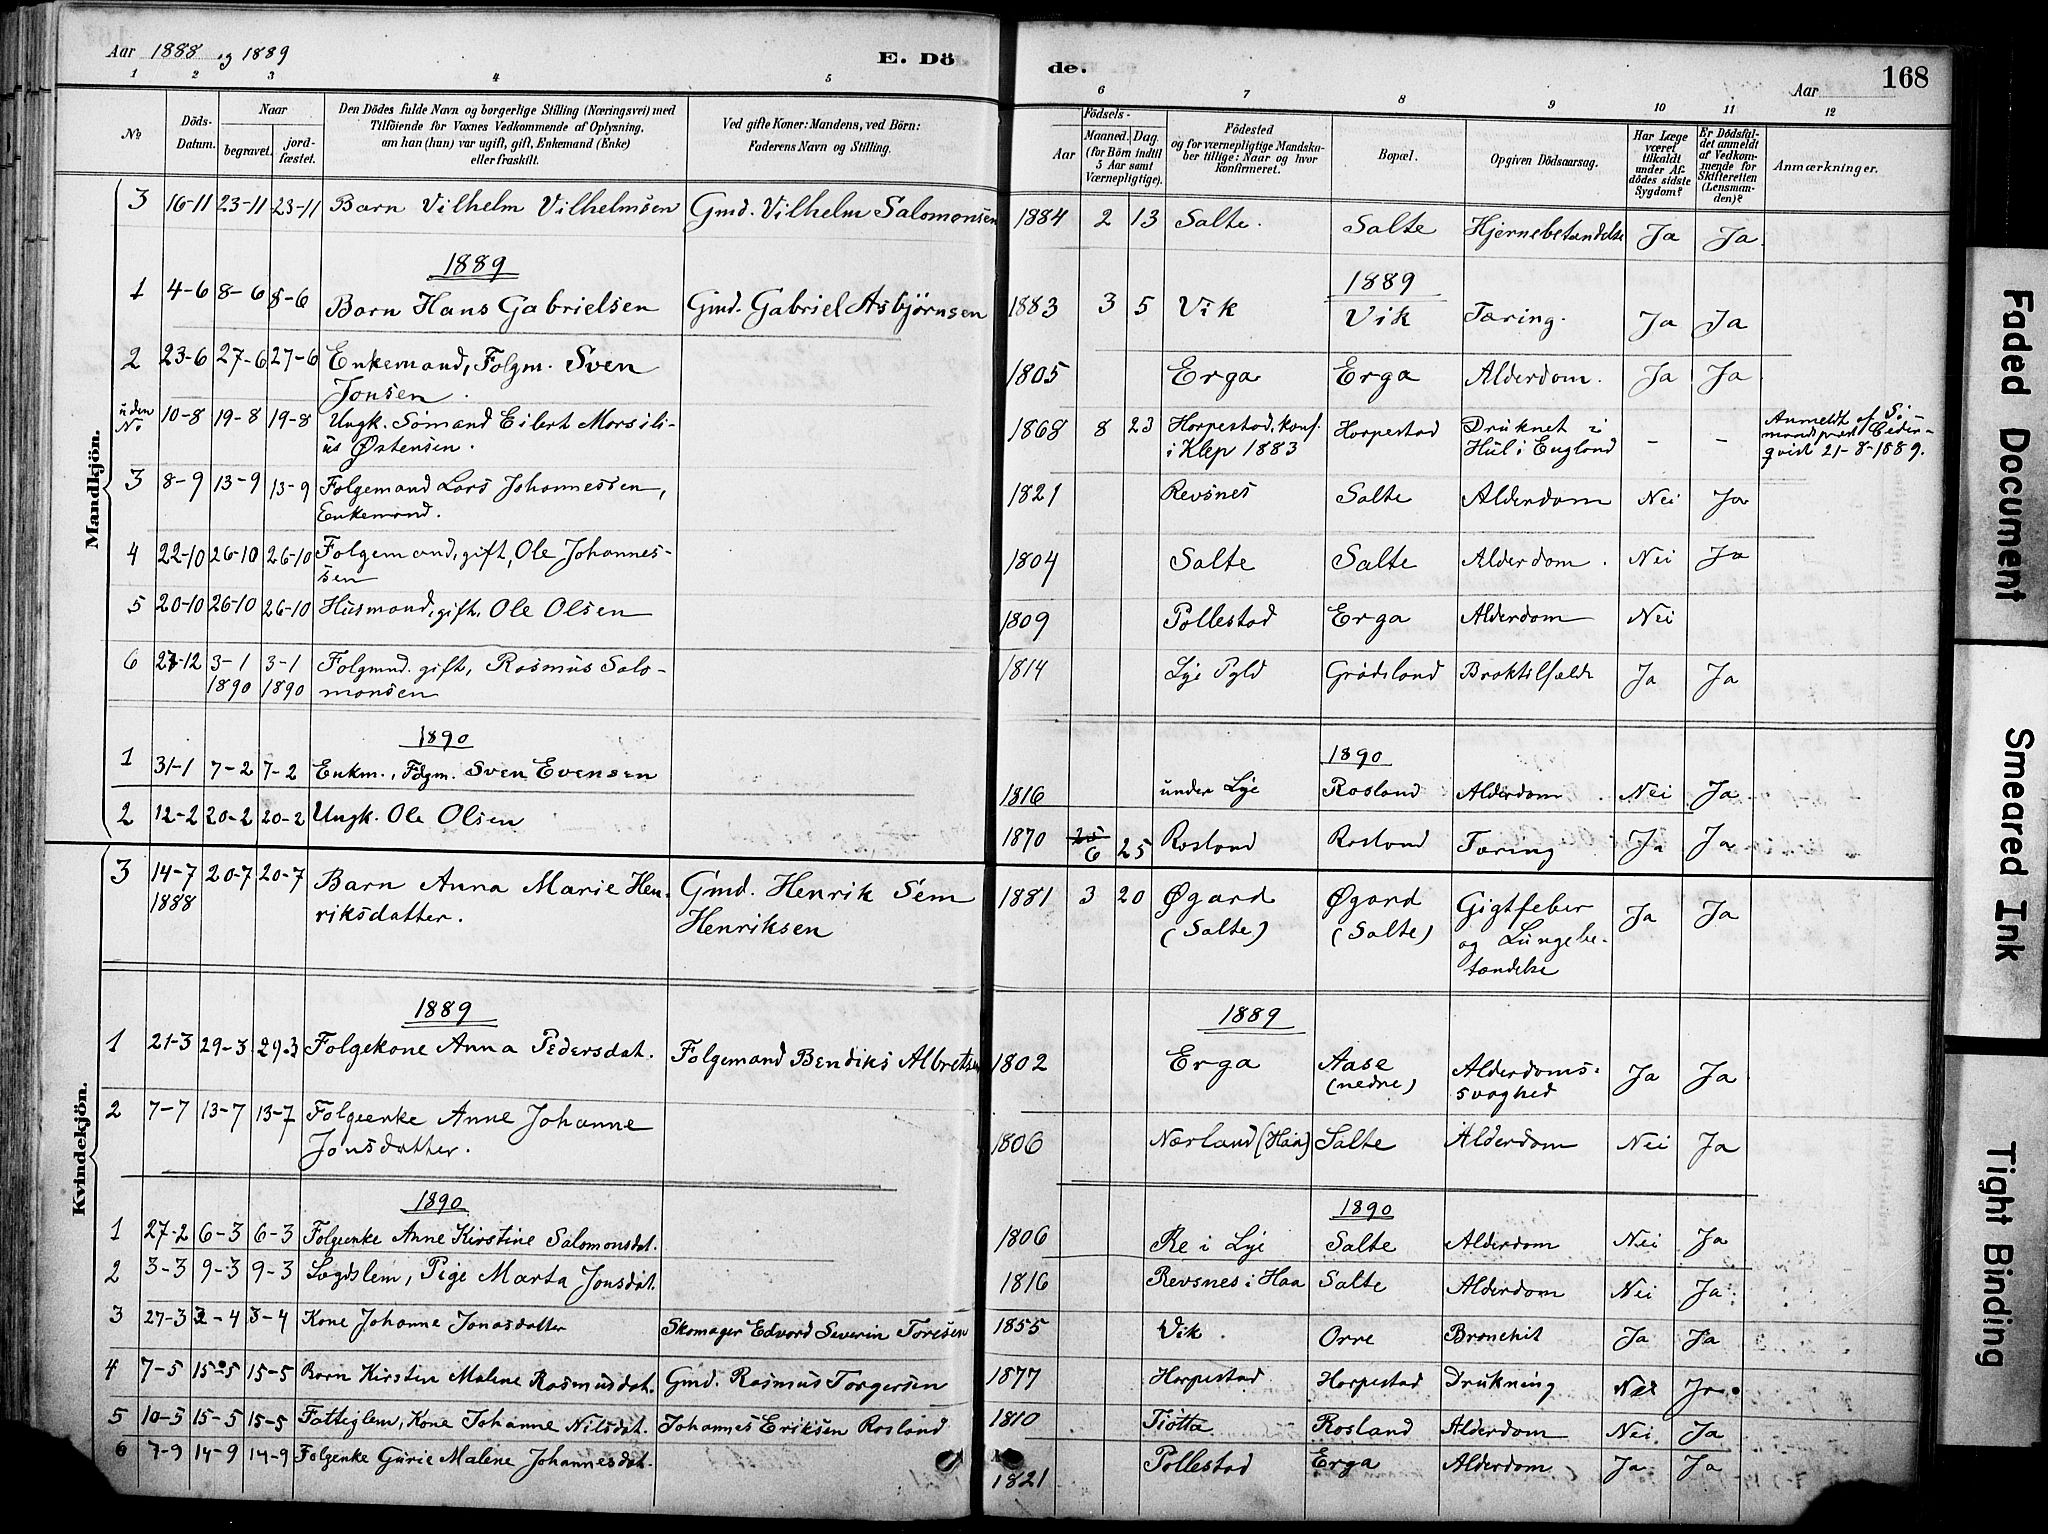 Aar 1888 og 1889 E. Dö
de. Aar 168
1 2 3 4 5 6 7 8 9 10 11 12
No Döds-Datum. Naar begravet. jordfæstet. Den Dödes fulde Navn og borgerlige Stilling (Næringsvei) med Tilföiende for Voxnes Vedkommende af Oplysning, om han (hun) var ugift, gift, Enkemand (Enke) eller fraskilt. Ved gifte Koner: Mandens, ved Börn: Faderens Navn og Stilling. Födsels- Aar Maaned. Dag. (for Börn indtil 5 Aar samt Værnepligtige). Födested og for værnepligtige Mandskaber tillige: Naar og hvor konfirmeret. Bopæl. Opgiven Dödsaarsag. Har Læge været tilkaldt under Afdödes sidste Sygdom? Er Dödsfaldet anmeldt af Vedkommende for Skifteretten (Lensmanden)? Anmærkninger.
Mandkjön.
3 16-11 23-11 23-11 Barn Vilhelm Vilhelmsen Gmd. Vilhelm Salomonsen 1884 2 13 Salte. Salte Hjernebetændelse Ja Ja.
1889 1889
1 4-6 8-6 8-6 Barn Hans Gabrielsen Gmd. Gabriel Asbjørnsen 1883 3 5 Vik Vik Tæring. Ja Ja
2 23-6 27-6 27-6 Enkemand, Folgm. Sven 1805 Erga Erga Alderdom. Ja Ja
Jonsen.
uden No 10-8 19-8 19-8 Ungk. Sømand Eilert Marsili- 1868 8 23 Horpestad, konf. Horpestad Druknet i - - Anmeldt af Sø-
us Østensen. i Klep 1883 Hul i England mandsprest Ceder-
qvist 21-8-1889.
3 8-9 13-9 13-9 Folgemand Lars Johannessen, 1821 Revsnes Salte Alderdom Nei Ja
Enkemand.
4 22-10 26-10 26-10 Folgemand, gift, Ole Johannes- 1804 Salte Salte Alderdom. Nei Ja
sen
5 20-10 26-10 26-10 Husmand, gift, Ole Olsen 1809 Pollestad Erga Alderdom Nei
6 27-12 3-1 3-1 Folgmnd. gift, Rasmus Salo- 1814 Lye Pgld Grødeland Braktilfælde Ja Ja
1890 1890 monsen
1890 1890
1 31-1 7-2 7-2 Enkm., Fdgm. Sven Evensen 1816 under Lye Rosland Alderdom Nei Ja
2 12-2 20-2 20-2 Ungk. Ole Olsen 1870 6 25 Rosland Rosland Tæring Ja Ja
Kvindekjön.
3 14-7 20-7 20-7 Barn Anna Marie Hen- Gmd. Henrik Sem 1881 3 20 Øgard Øgard Gigtfeber Ja Ja
1888 riksdatter. Henriksen (Salte) (Salte) og Lungebe-
tændelse
1889 1889
1 21-3 29-3 29-3 Folgekone Anna Pedersdat. Folgemand Bendiks Albretsen 1802 Erga Aase Alderdoms- Ja Ja
(nedre) svaghed
2 7-7 13-7 13-7 Folgeenke Anne Johanne 1806 Nærland (Haa) Salte Alderdom Nei Ja
Jonsdatter.
1890 1890
1 27-2 6-3 6-3 Folgeenke Anne Kirstine Salomonsdat. 1806 Re i Lye Salte Alderdom Nei Ja
2 3-3 9-3 9-3 Lægdslem, Pige Marta Jonsdat. 1816 Revsnes i Haa Salte Alderdom Nei Ja
3 27-3 3-4 3-4 Kone Johanne Jonasdatter Skomager Edvard Severin Toresen 1855 Vik Orre Bronchit Ja Ja
4 7-5 15-5 15-5 Barn Kirsten Malene Rasmusdat. Gmd. Rasmus Torgersen 1877 Horpestad Horpestad Drukning Nei Ja
5 10-5 15-5 15-5 Fattiglem, Kone Johanne Nilsdat. Johannes Eriksen Rosland 1810 Tjøtta Rosland Alderdom Nei Ja
6 7-9 14-9 14-9 Folgenke Gurie Malene Johannesdat. 1821 Pollestad Erga Alderdom Ja Ja
Faded Document
Smeared Ink
Tight Binding